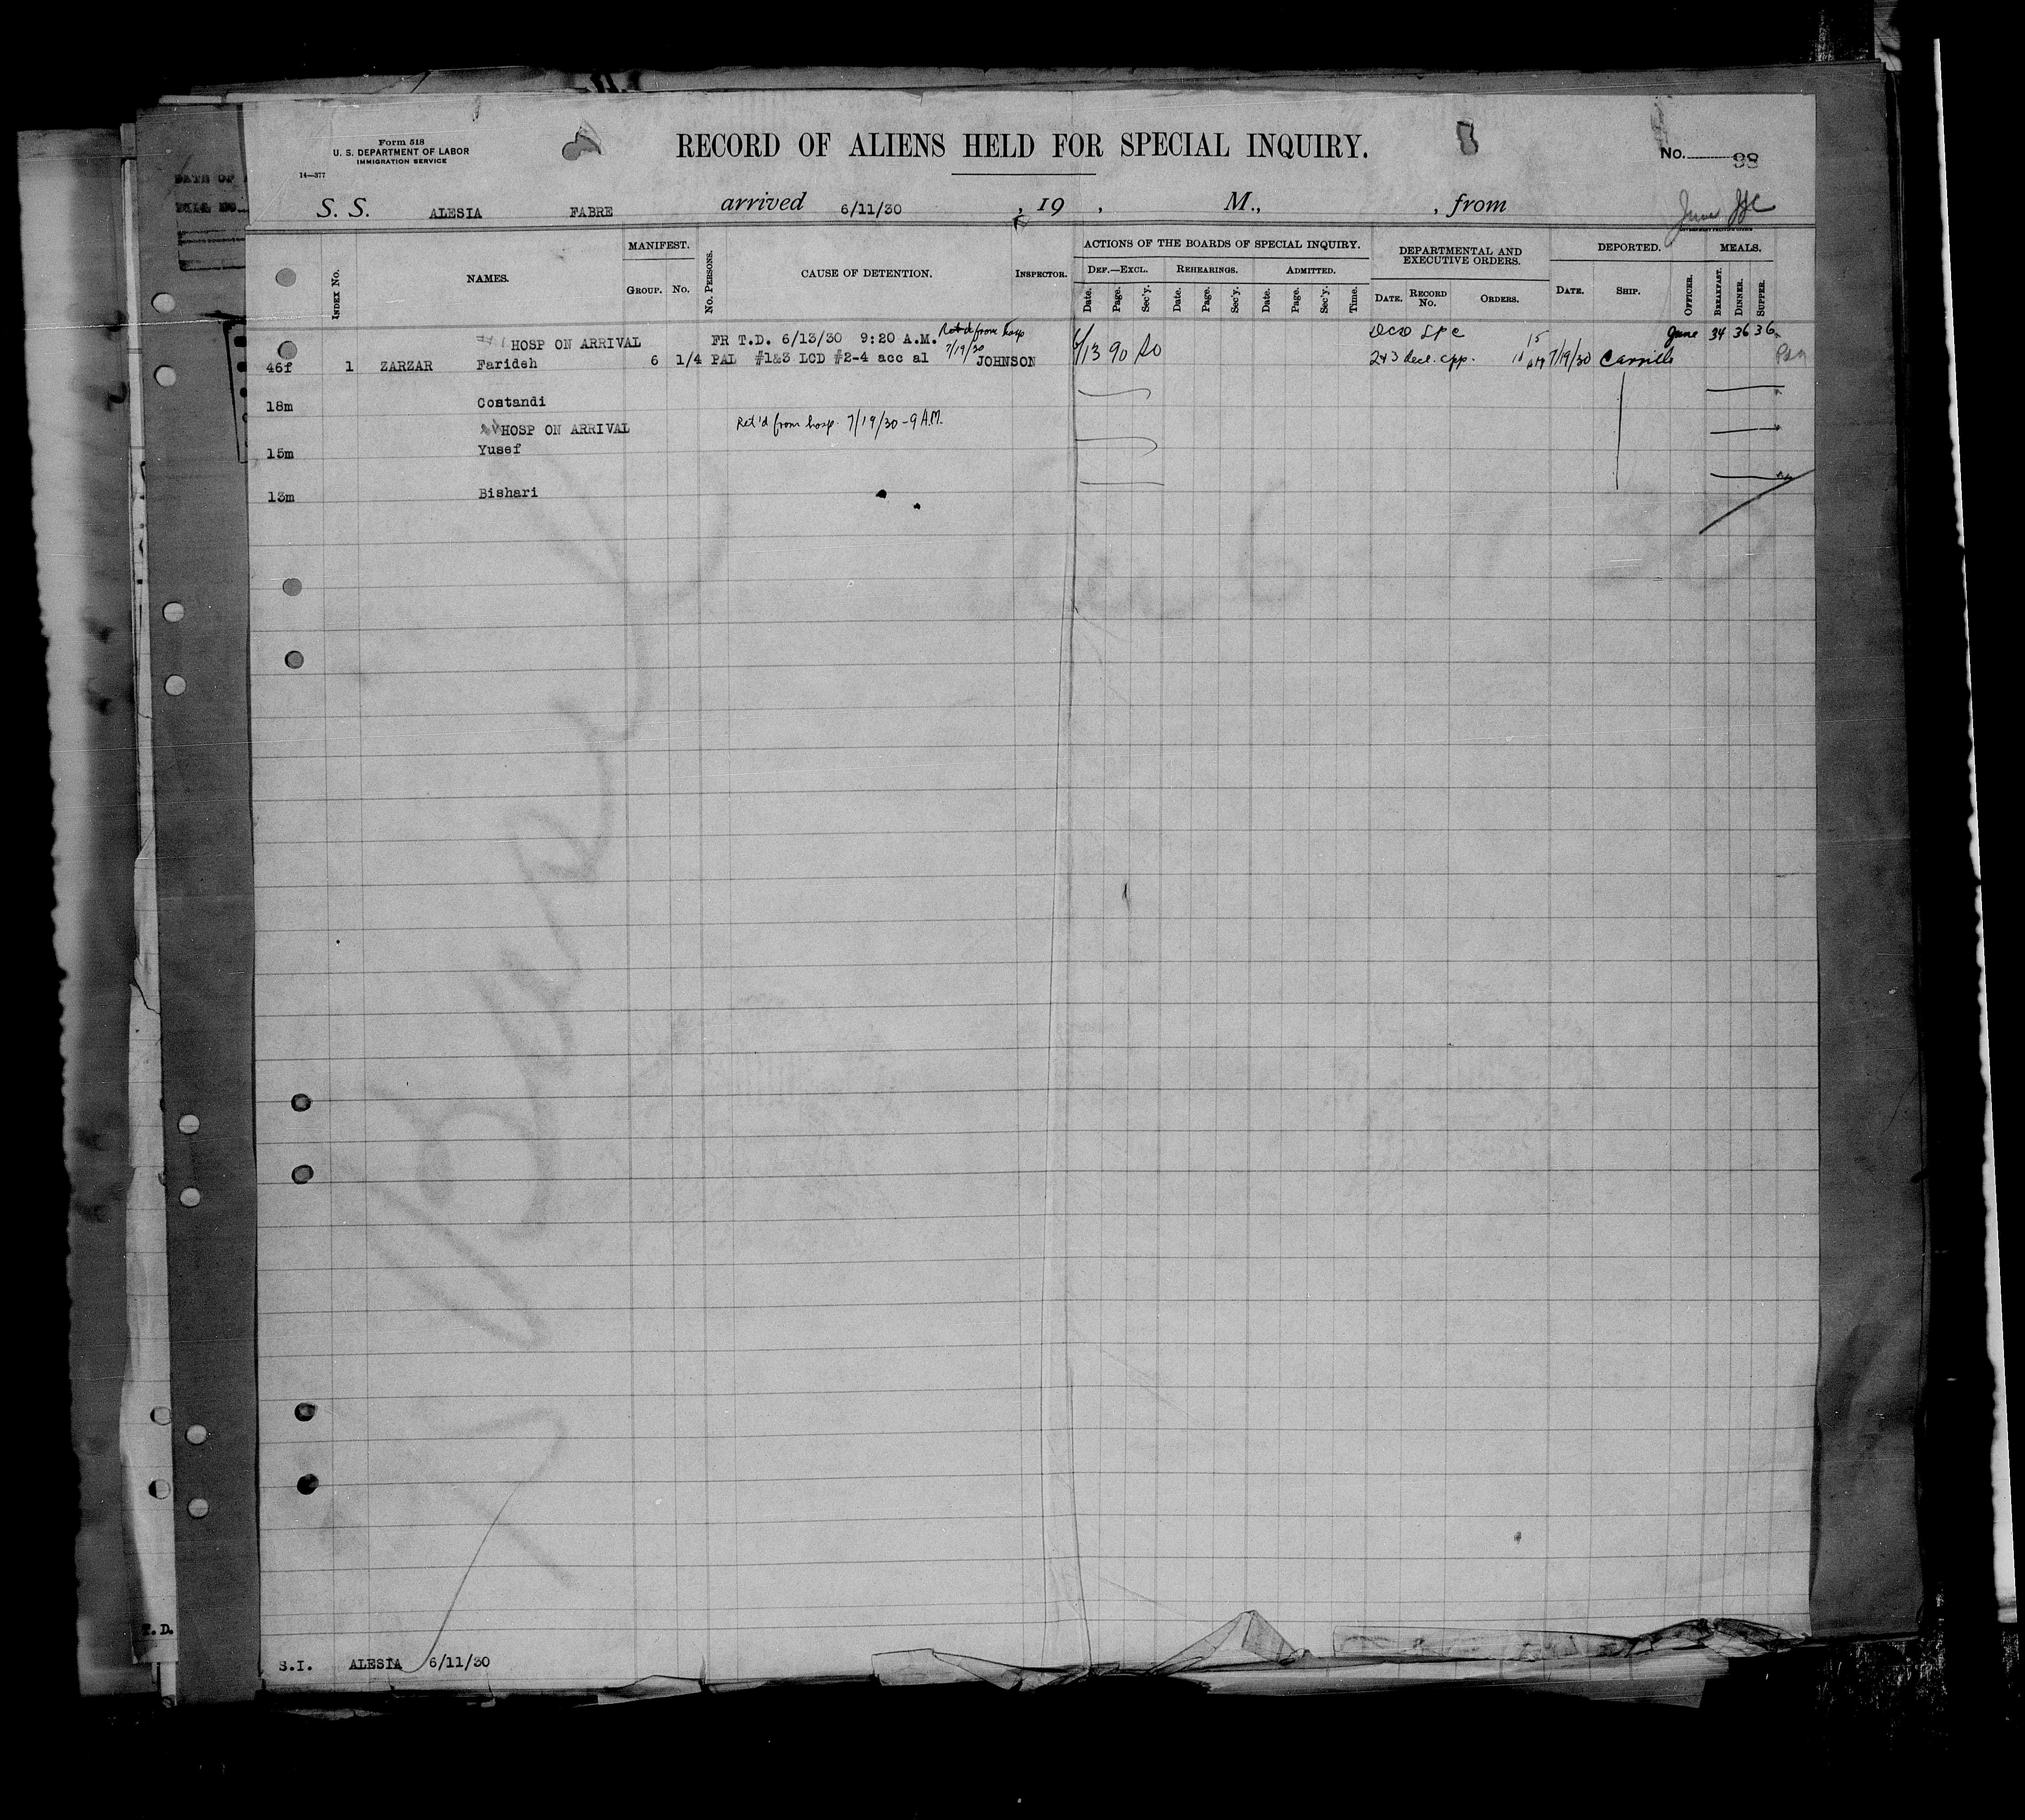 Form 518
U. S. DEPARTMENT OF LABOR
IMMIGRATION SERVICE
14—377
RECORD OF ALIENS HELD FOR SPECIAL INQUIRY.
No. 98
DATE OF
S. S. ALESIA FABRE arrived 6/11/30 , 19 , M., , from
June
INDEX No. NAMES. MANIFEST. GROUP. No. No. PERSONS. CAUSE OF DETENTION. INSPECTOR.
ACTIONS OF THE BOARDS OF SPECIAL INQUIRY.
DEF.—EXCL. Date. Page. Sec'y. REHEARINGS. Date. Page. Sec'y. ADMITTED. Date. Page. Sec'y. Time.
DEPARTMENTAL AND EXECUTIVE ORDERS. DATE. RECORD No. ORDERS.
DEPORTED. DATE. SHIP. OFFICER.
MEALS. BREAKFAST. DINNER. SUPPER.
HOSP ON ARRIVAL FR T.D. 6/13/30 9:20 A.M. Ret'd from hosp 7/19/30 June 34 36 36
46f 1 ZARZAR Farideh 6 1/4 PAL #1&3 LCD #2-4 acc al JOHNSON 6/13 90 2&3 decl. app. 7/19/30
18m Costandi
HOSP ON ARRIVAL Ret'd from hosp. 7/19/30 - 9 A.M.
15m Yusef
13m Bishari
S.I. ALESIA 6/11/30
T.D.